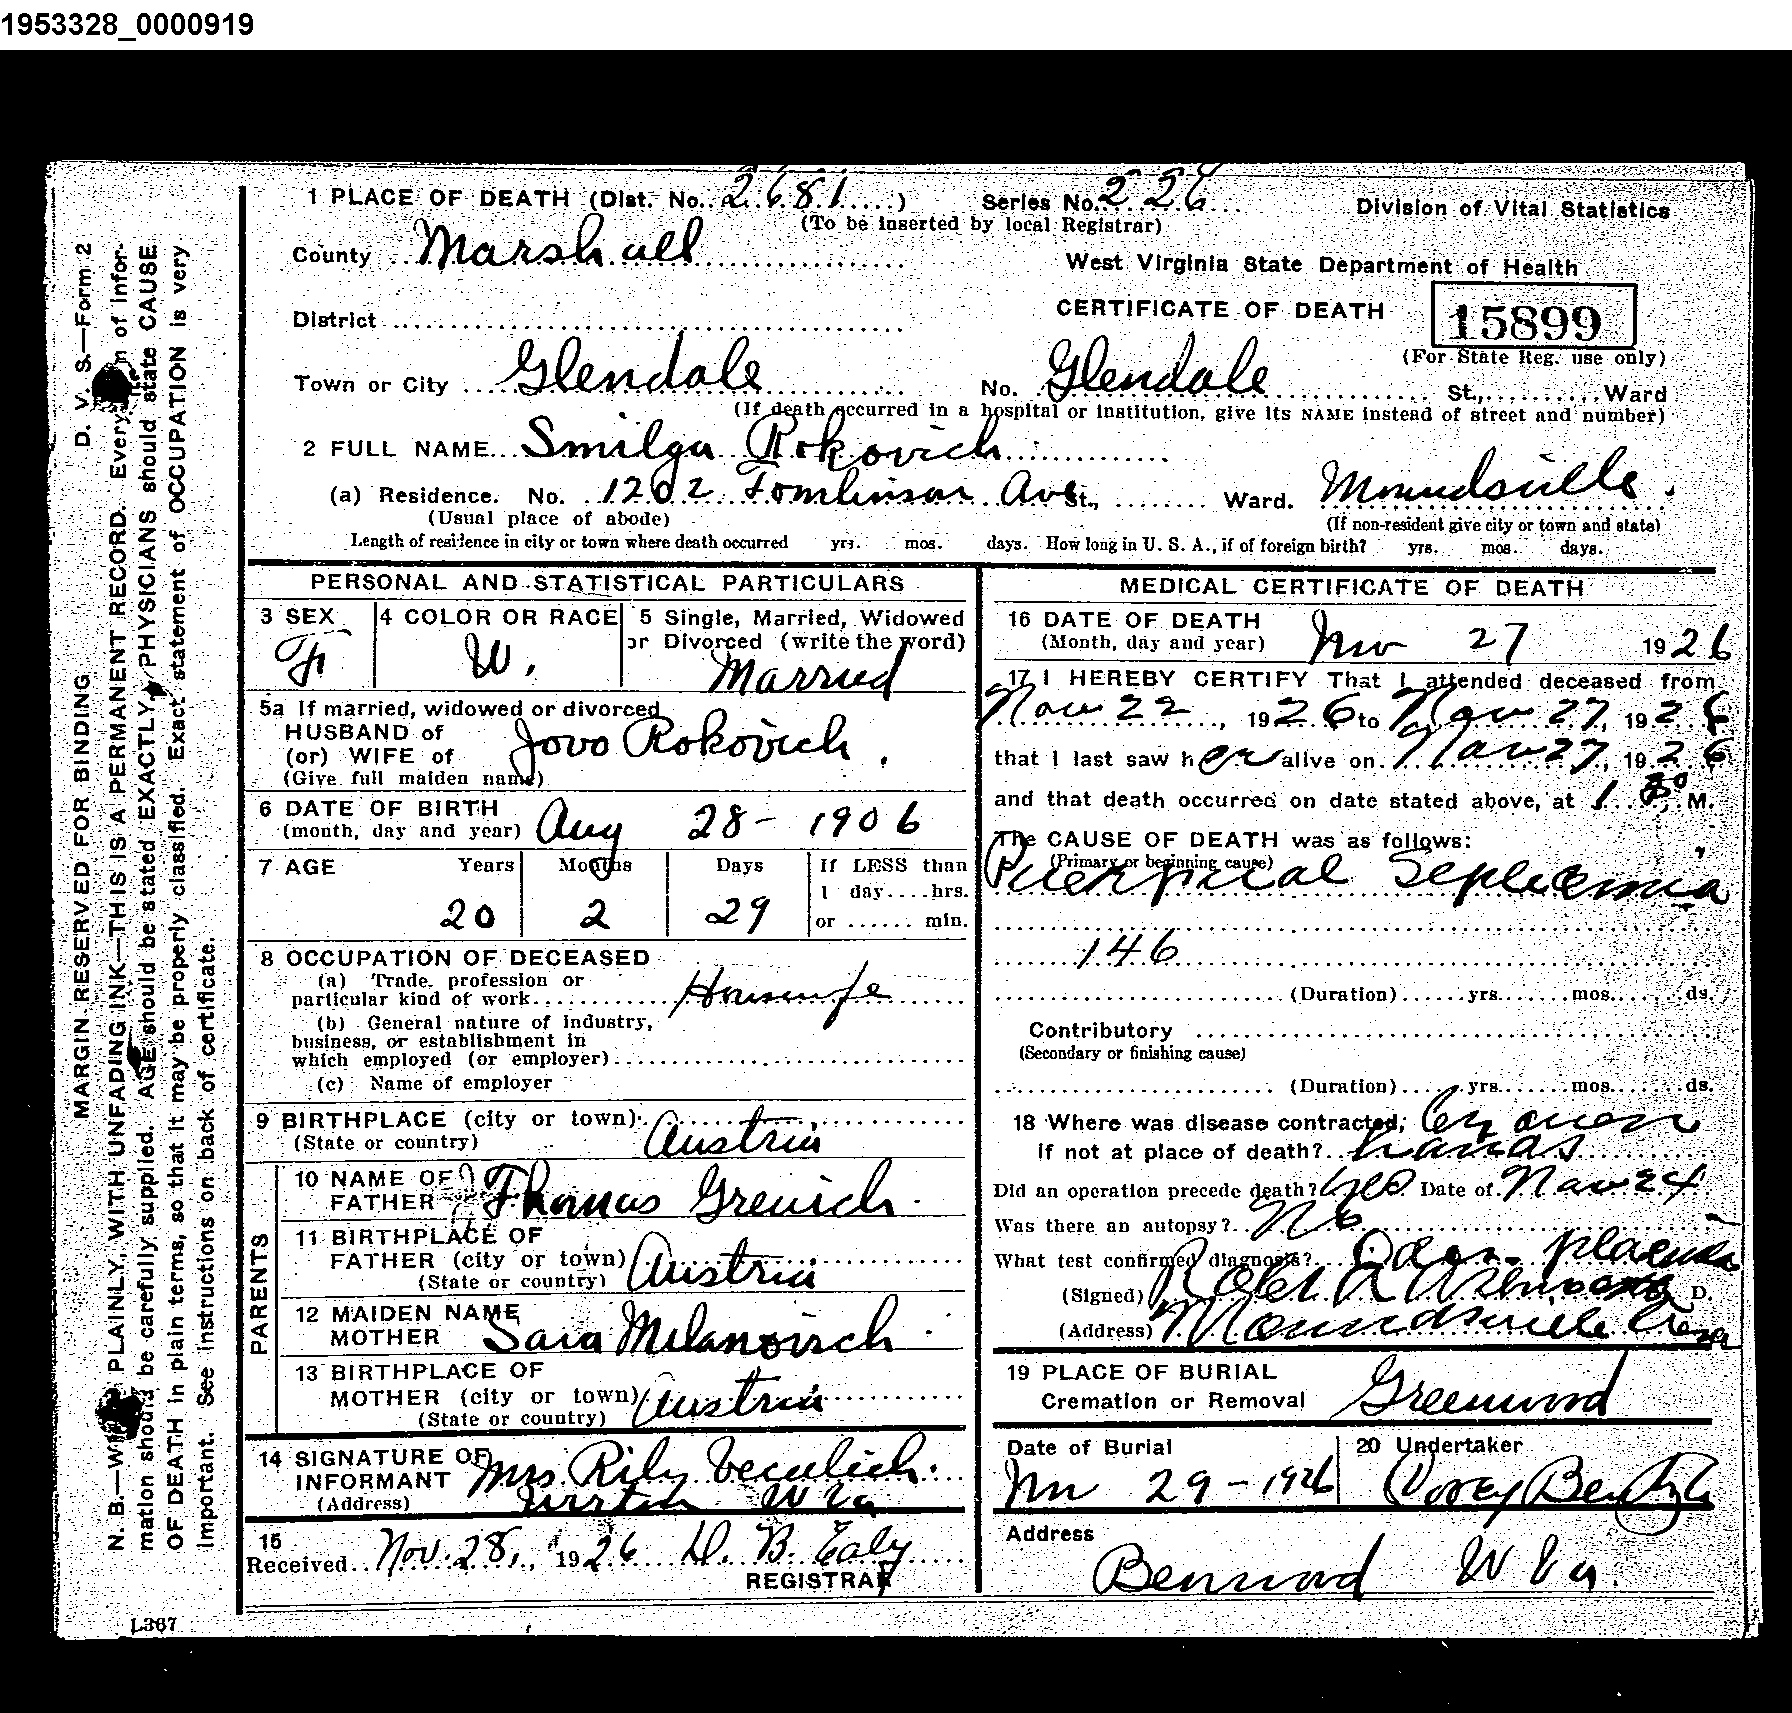 1953328_0000919
1 PLACE OF DEATH (Dist. No. 2681) Series No. 226 Division of Vital Statistics
(To be inserted by local Registrar)
County Marshall
West Virginia State Department of Health
District
CERTIFICATE OF DEATH 15899
(For State Reg. use only)
Town or City Glendale No. Glendale St., Ward
(If death occurred in a hospital or institution, give its NAME instead of street and number)
2 FULL NAME Smilga Rokovich
(a) Residence. No. 1202 Tomlinson Ave St., Ward. Moundsville.
(Usual place of abode) (If non-resident give city or town and state)
Length of residence in city or town where death occurred yrs. mos. days. How long in U. S. A., if of foreign birth? yrs. mos. days.
PERSONAL AND STATISTICAL PARTICULARS
3 SEX F
4 COLOR OR RACE W.
5 Single, Married, Widowed
or Divorced (write the word)
Married
5a If married, widowed or divorced
HUSBAND of
(or) WIFE of Jovo Rokovich.
(Give full maiden name)
6 DATE OF BIRTH
(month, day and year) Aug 28 - 1906
7 AGE Years Months Days If LESS than
1 day....hrs.
20 2 29 or ...... min.
8 OCCUPATION OF DECEASED
(a) Trade, profession or
particular kind of work Housewife
(b) General nature of industry,
business, or establishment in
which employed (or employer)
(c) Name of employer
9 BIRTHPLACE (city or town)
(State or country) Austria
PARENTS
10 NAME OF
FATHER Thomas Greuich.
11 BIRTHPLACE OF
FATHER (city or town)
(State or country) Austria
12 MAIDEN NAME
MOTHER Sara Milanovich.
13 BIRTHPLACE OF
MOTHER (city or town)
(State or country) Austria
14 SIGNATURE OF
INFORMANT Mrs. Rily
(Address) W Va
15
Received Nov. 28, 1926 D. B. Ealy
REGISTRAR
MEDICAL CERTIFICATE OF DEATH
16 DATE OF DEATH
(Month, day and year) Nov 27 1926
17 I HEREBY CERTIFY That I attended deceased from
Nov 22, 1926 to Nov 27, 1926
that I last saw her alive on Nov 27, 1926
and that death occurred on date stated above, at 1 30 M.
The CAUSE OF DEATH was as follows:
(Primary or beginning cause)
Puerperal Septicemia
146
(Duration) yrs. mos. ds.
Contributory
(Secondary or finishing cause)
(Duration) yrs. mos. ds.
18 Where was disease contracted,
if not at place of death? hands
Did an operation precede death? Yes Date of Nov 24
Was there an autopsy? No
What test confirmed diagnosis? placenta
(Signed) D.
(Address) Moundsville
19 PLACE OF BURIAL
Cremation or Removal Greenwood
Date of Burial
Nov 29 - 1926
20 Undertaker
Address
Benwood W Va.
D. V. S.—Form 2
MARGIN RESERVED FOR BINDING
N. B.—WRITE PLAINLY, WITH UNFADING INK—THIS IS A PERMANENT RECORD. Every item of infor-
mation should be carefully supplied. AGE should be stated EXACTLY. PHYSICIANS should state CAUSE
OF DEATH in plain terms, so that it may be properly classified. Exact statement of OCCUPATION is very
important. See instructions on back of certificate.
L367